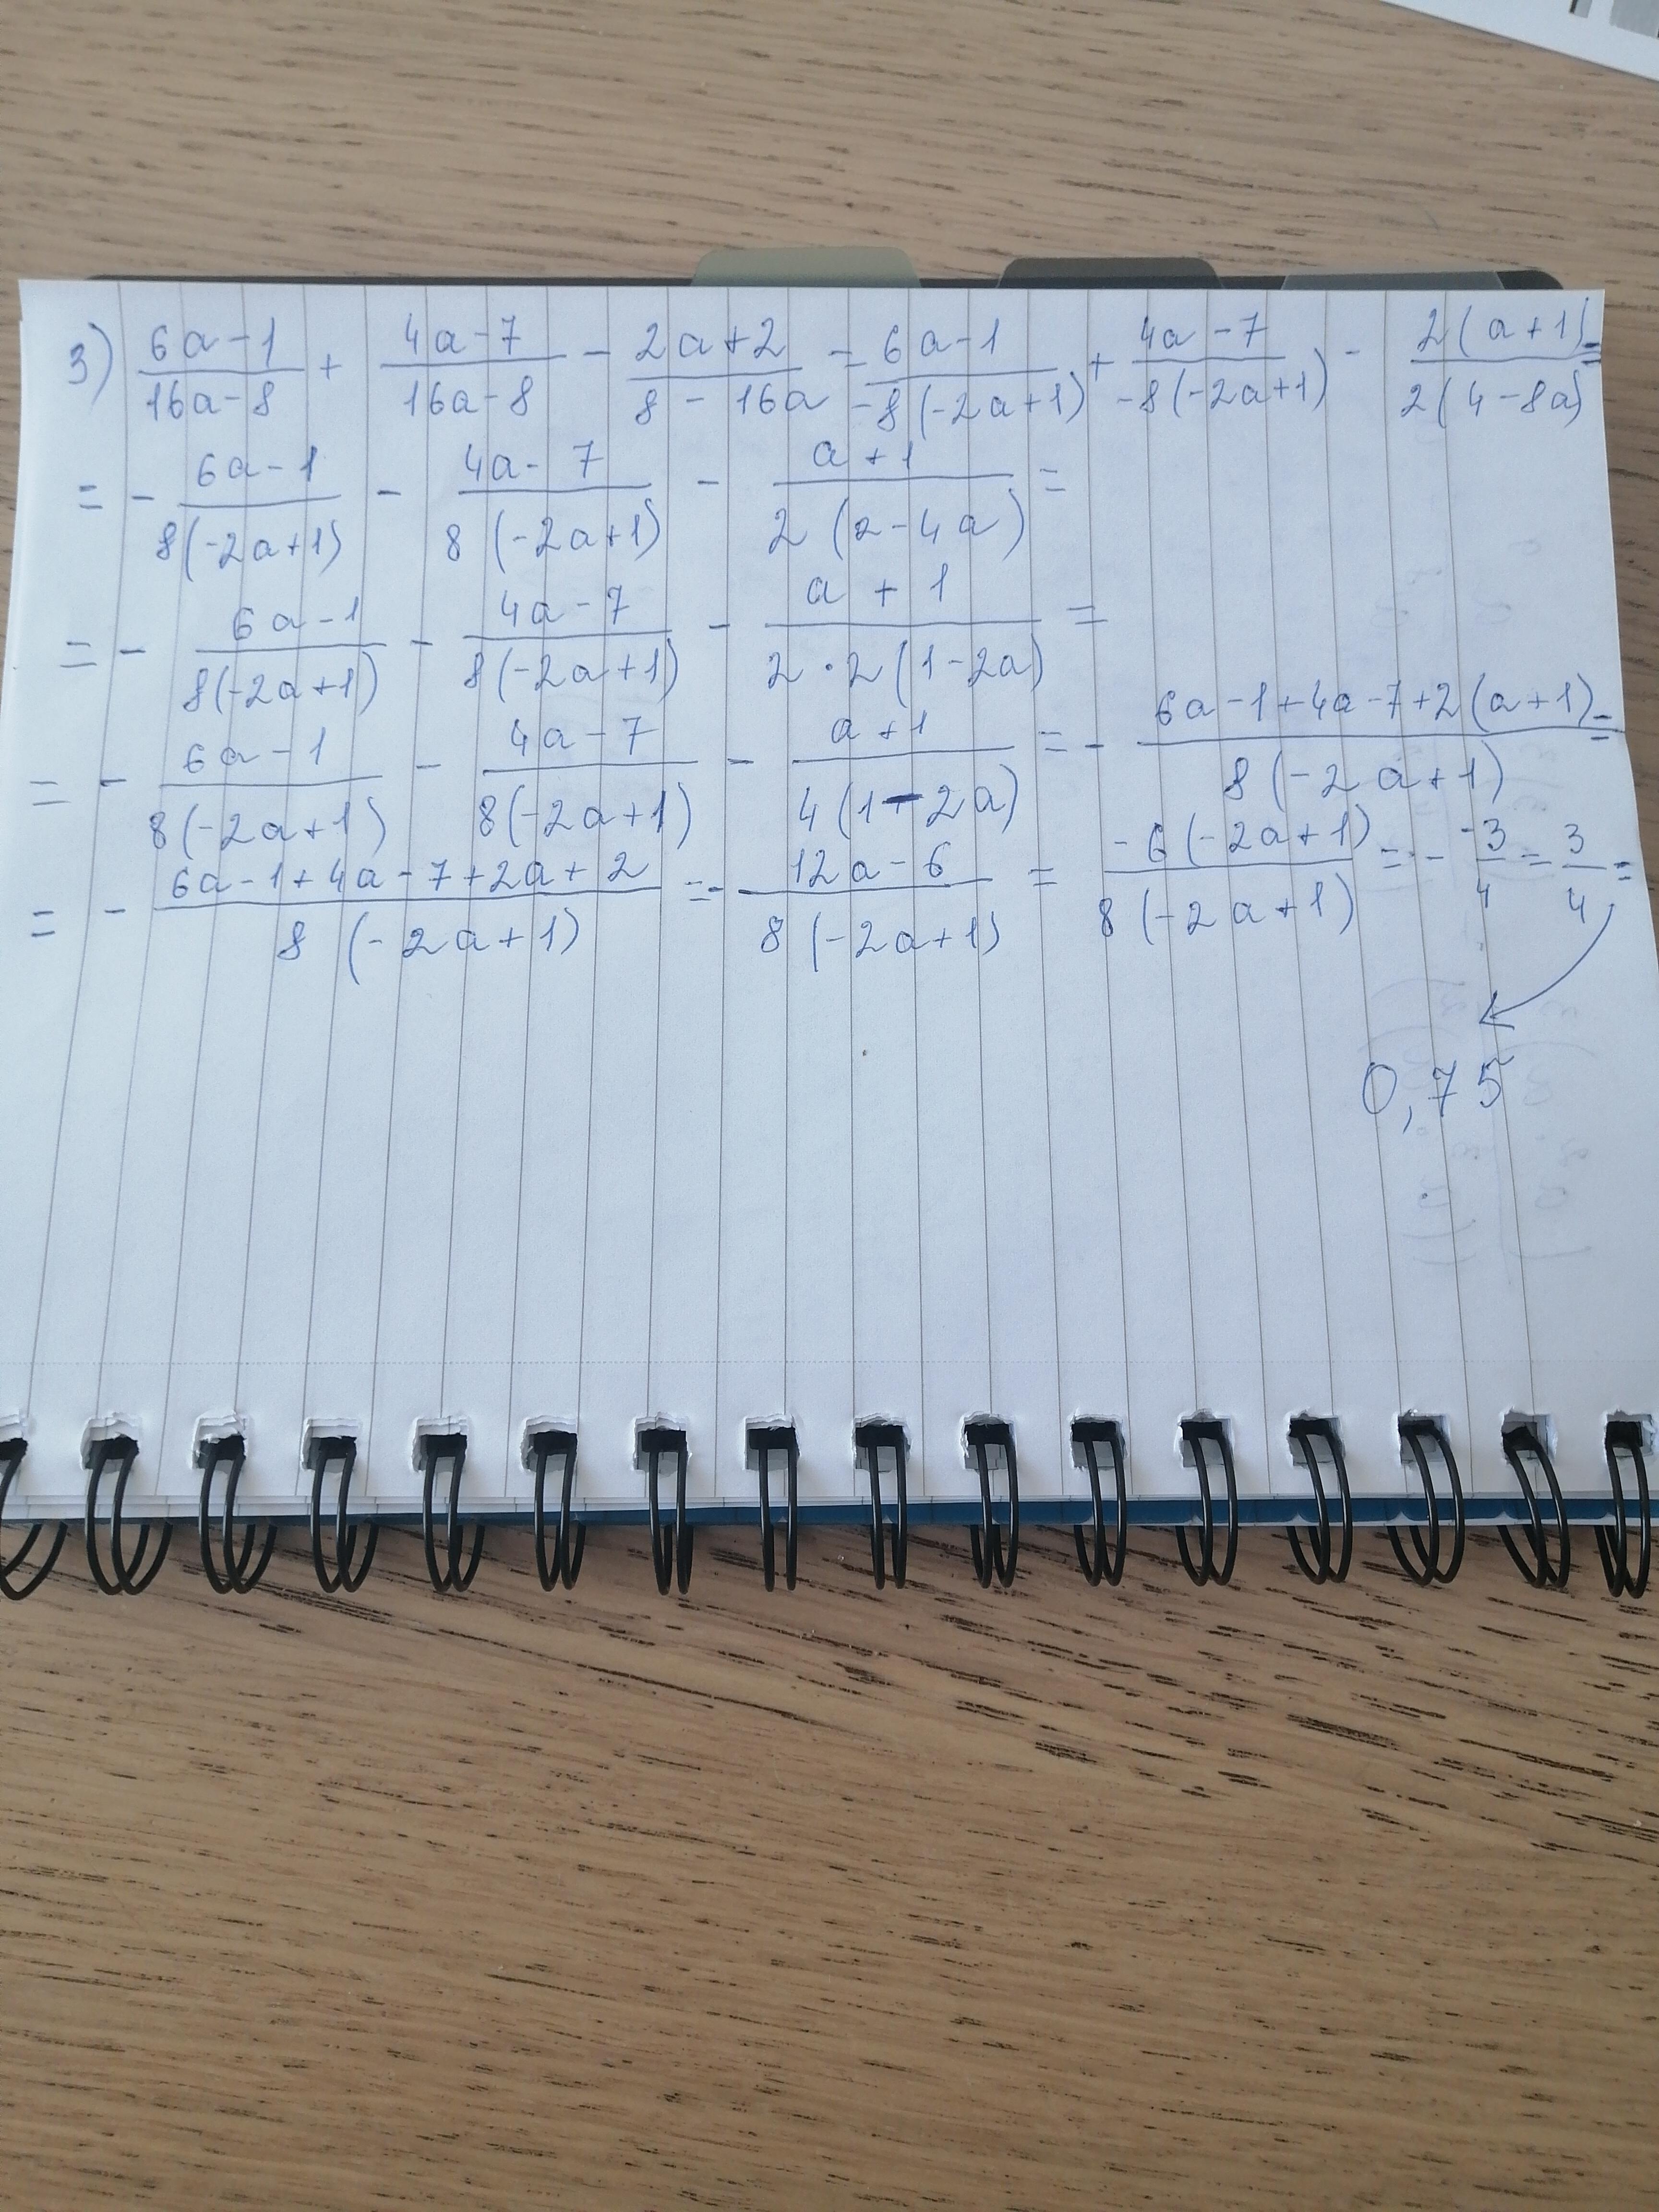 3) (6a-1)/(16a-8) + (4a-7)/(16a-8) - (2a+2)/(8-16a) = (6a-1)/(-8(-2a+1)) + (4a-7)/(-8(-2a+1)) - (2(a+1))/(2(4-8a)) =
= - (6a-1)/(8(-2a+1)) - (4a-7)/(8(-2a+1)) - (a+1)/(2(2-4a)) =
= - (6a-1)/(8(-2a+1)) - (4a-7)/(8(-2a+1)) - (a+1)/(2·2(1-2a)) =
= - (6a-1)/(8(-2a+1)) - (4a-7)/(8(-2a+1)) - (a+1)/(4(1-2a)) = - (6a-1+4a-7+2(a+1))/(8(-2a+1)) =
= - (6a-1+4a-7+2a+2)/(8(-2a+1)) = - (12a-6)/(8(-2a+1)) = (-6(-2a+1))/(8(-2a+1)) = - (-3)/4 = 3/4 =
0,75